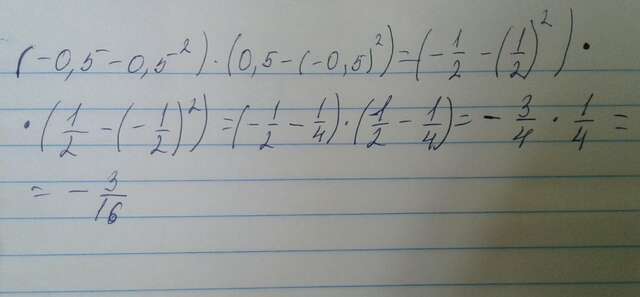 (-0,5-0,5⁻²)·(0,5-(-0,5)²)=(-1/2-(1/2)²)·
·(1/2-(-1/2)²)=(-1/2-1/4)·(1/2-1/4)=-3/4·1/4=
=-3/16